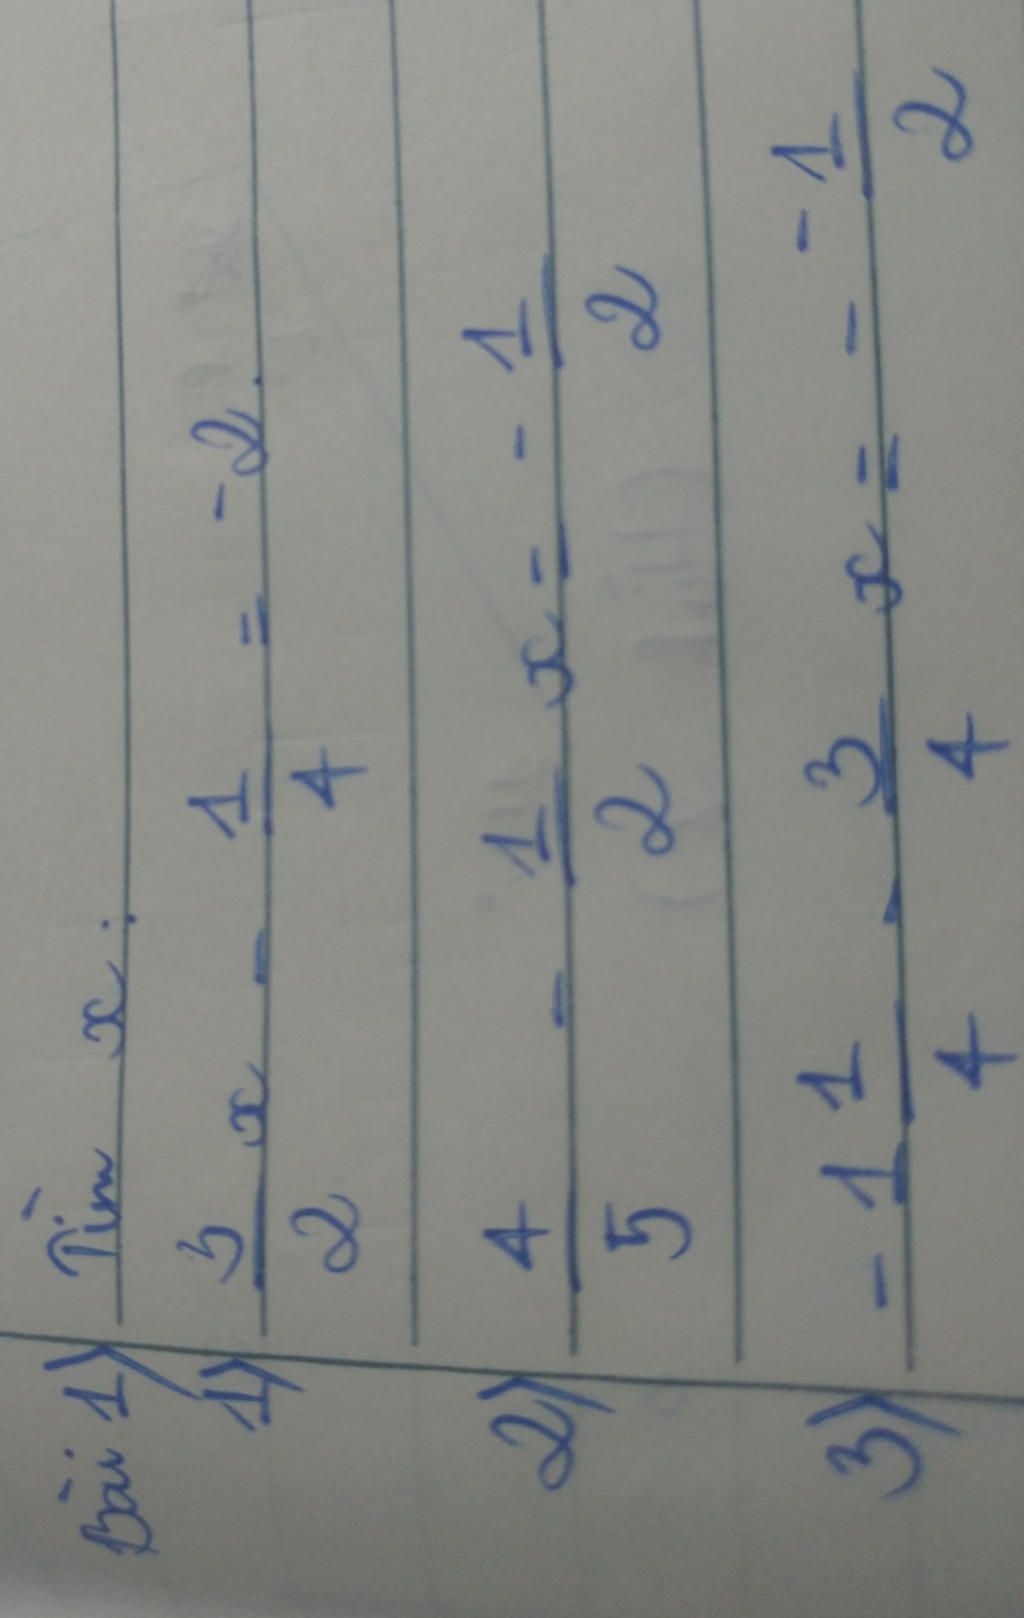 Bài 1) Tìm x.
1) 3/2 x - 1/4 = -2.
2) 4/5 - 1/2 x = - 1/2
3) -1 1/4 - 3/4 x = - -1/2